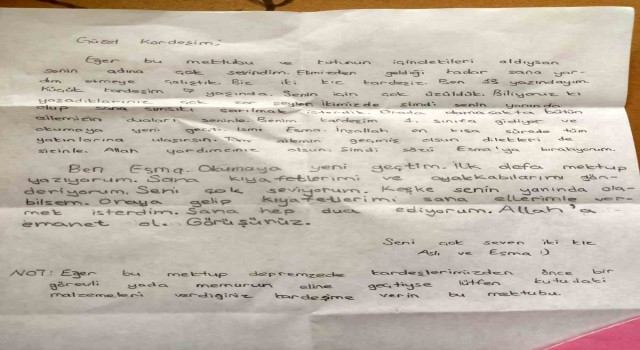 Güzel Kardeşim;
Eğer bu mektubu ve kutunun içindekileri aldıysan
senin adına çok sevindim. Elimizden geldiği kadar sana yar-
dım etmeye çalıştık. Biz iki kız kardeşiz. Ben 13 yaşındayım.
Küçük kardeşim 7 yaşında. Senin için çok üzüldük. Biliyoruz ki
yaşadıklarınız çok zor şeyler. İkimizde şimdi senin yanında
olup sana sımsıkı sarılmak isterdik. Orada olamasakta bütün
ailemizin duaları seninle. Benim kardeşim 1. sınıfa gidiyor ve
okumaya yeni geçti. İsmi Esma. İnşallah en kısa sürede tüm
yakınlarına ulaşırsın. Tüm ailemin geçmiş olsun dilekleri de
sizinle. Allah yardımcınız olsun. Şimdi sözü Esma'ya bırakıyorum.
Ben Esma. Okumaya yeni geçtim. İlk defa mektup
yazıyorum. Sana kıyafetlerimi ve ayakkabılarımı gön-
deriyorum. Seni çok seviyorum. Keşke senin yanında ola-
bilsem. Oraya gelip kıyafetlerimi sana ellerimle ver-
mek isterdim. Sana hep dua ediyorum. Allah'a
emanet ol. Görüşürüz.
Seni çok seven iki kız
Aslı ve Esma :)
NOT: Eğer bu mektup depremzede kardeşlerimizden önce bir
görevli yada memurun eline geçtiyse lütfen kutudaki
malzemeleri verdiğiniz kardeşime verin bu mektubu.